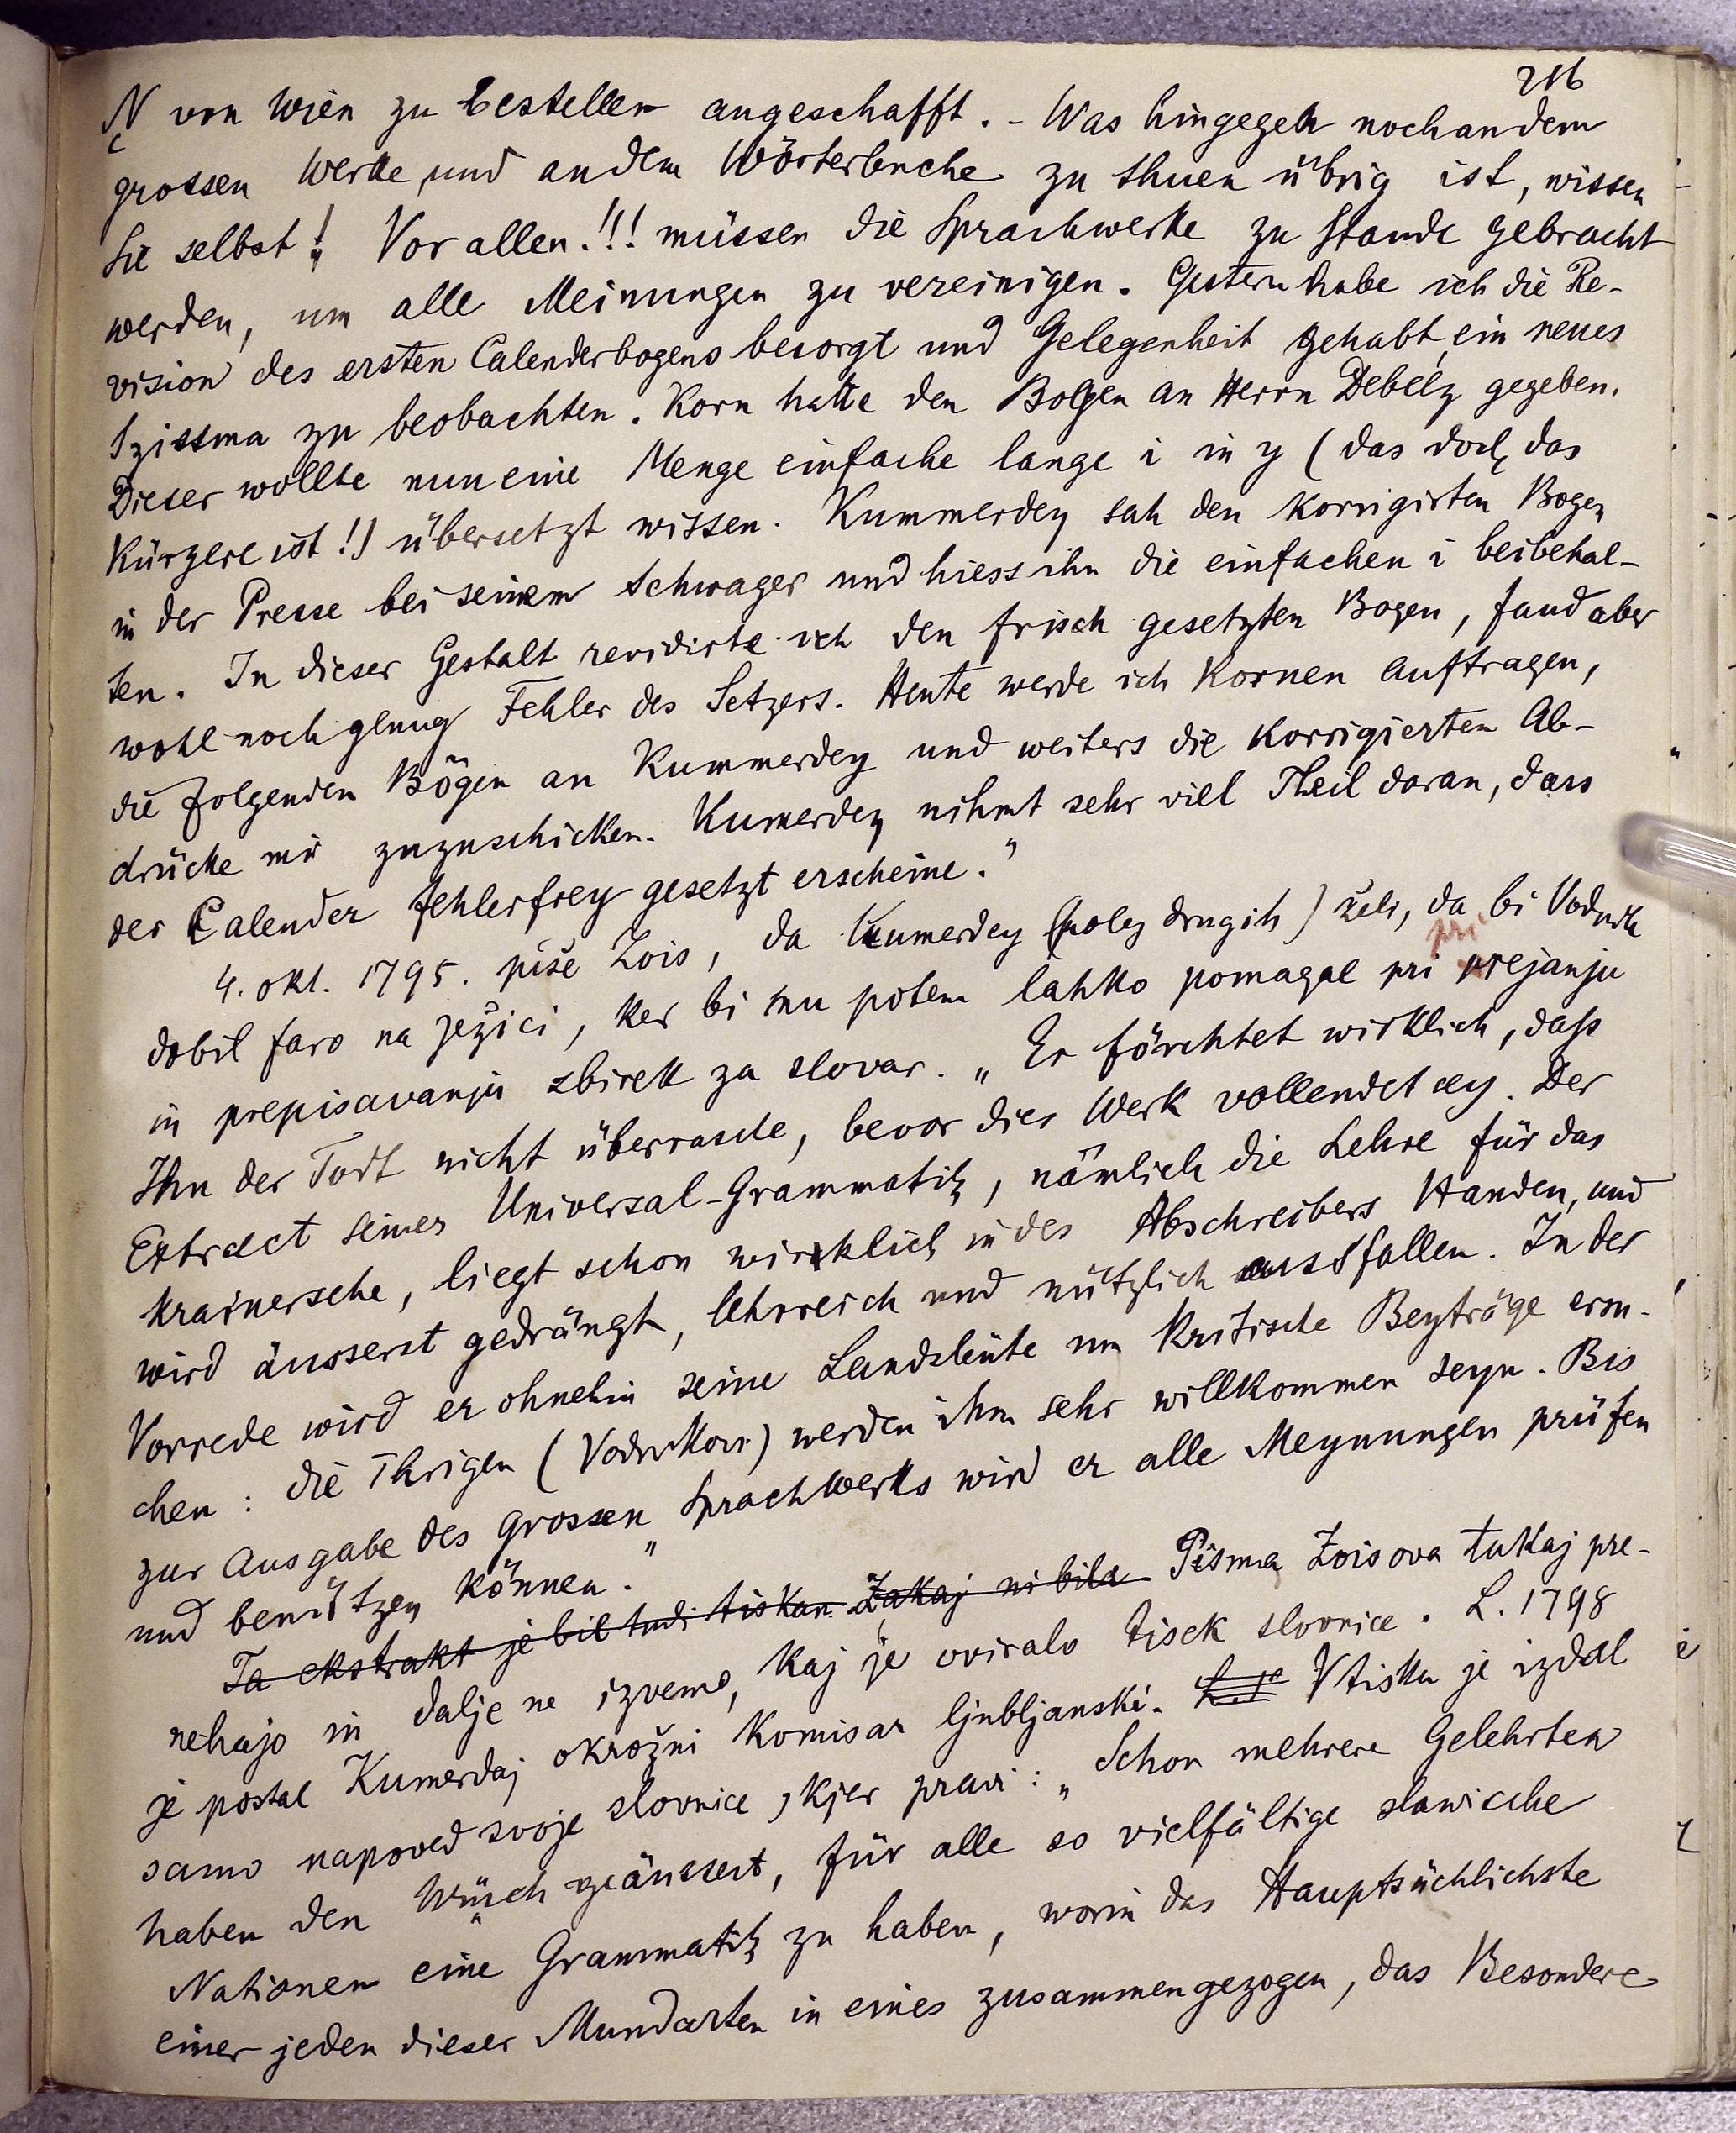 216
N von Wien zu bestellen angeschafft. - Was hingegen noch an dem
grossen Werke, und an dem Wörterbuche zu thuen übrig ist, wissen
Sie selbst! Vor allen!!! müssen die Sprachwerke zu Stande gebracht
werden, um alle Meinungen zu vereinigen. Gestern habe ich die Re-
vision des ersten Calenderbogens besorgt und Gelegenheit gehabt, ein neues
Szissma zu beobachten. Korn hatte den Bogen an Herrn Debélz gegeben.
Dieser wollte nun eine Menge einfache lange i in y (das doch das
Kürzere ist!) übersetzt wissen. Kummerdey sah den korrigirten Bogen
in der Presse bei seinem Schwager und hiess ihn die einfachen i beibehal-
ten. In dieser Gestalt revidirte ich den frisch gesetzten Bogen, fand aber
wohl noch genug Fehler des Setzers. Heute werde ich Kornen auftragen,
die folgenden Bögen an Kummerdey und weiters die korrigierten Ab-
drücke mir zuzuschicken. Kumerdey nihmt sehr viel Theil daran, dass
der Calender fehlerfrey gesetzt erscheine."
4. okt. 1795. piše Zois, da Kumerdey (poleg drugih) želi, da bi Vodnik
dobil faro na Ježici, ker bi mu potem lahko pomagal pri prejanju
pri
in prepisavanju zbirek za slovar. „Er förchtet wirklich, daß
Ihn der Todt nicht überrasche, bevor dies Werk vollendet sey. Der
Extract seiner Universal-Grammatik, nämlich die Lehre für das
Krainersche, liegt schon wirklich in des Abschreibers Handen, und
wird äusserst gedrängt, lehrreich und nützlich ausfallen. In der
Vorrede wird er ohnehin seine Landsleüte um kritische Beyträge ersu-
chen: die Ihrigen (Vodnikovi) werden ihm sehr willkommen seyn. Bis
zur Ausgabe des grossen Sprachwerks wird er alle Meynungen prüfen
und benützen können."
Ta ekstrakt je bil tudi tiskan Zakaj ni bila Pisma Zoisova tukaj pre-
nehajo in dalje ne izvemo, kaj je oviralo tisek slovnice. L. 1798
je postal Kumerdaj okrožni komisar ljubljanski. V tisku je izdal
samo napoved svoje slovnice, kjer pravi: „Schon mehrere Gelehrten
haben den Wunsch geäussert, für alle so vielfältige slawische
Nationen eine Grammatik zu haben, worin das Hauptsächlichste
einer jeden dieser Mundarten in eines zusammengezogen, das Besondere